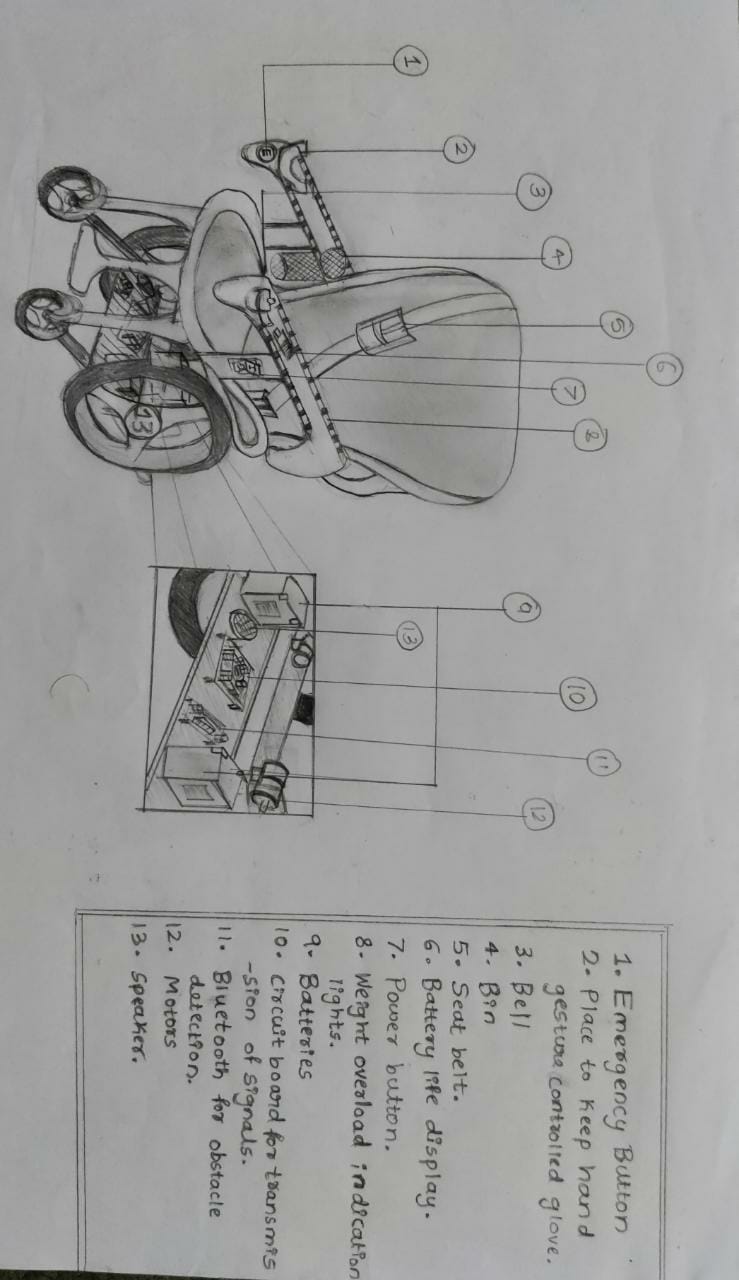 6
5
11
8
7
10
4
3
12
9
2
1
13
E
13
1. Emergency Button
2. Place to keep hand
gesture controlled glove.
3. Bell
4. Bin
5. Seat belt.
6. Battery life display.
7. Power button.
8. Weight overload indication
lights.
9. Batteries
10. Circuit board for transmis
-sion of signals.
11. Bluetooth for obstacle
detection.
12. Motors
13. Speaker.